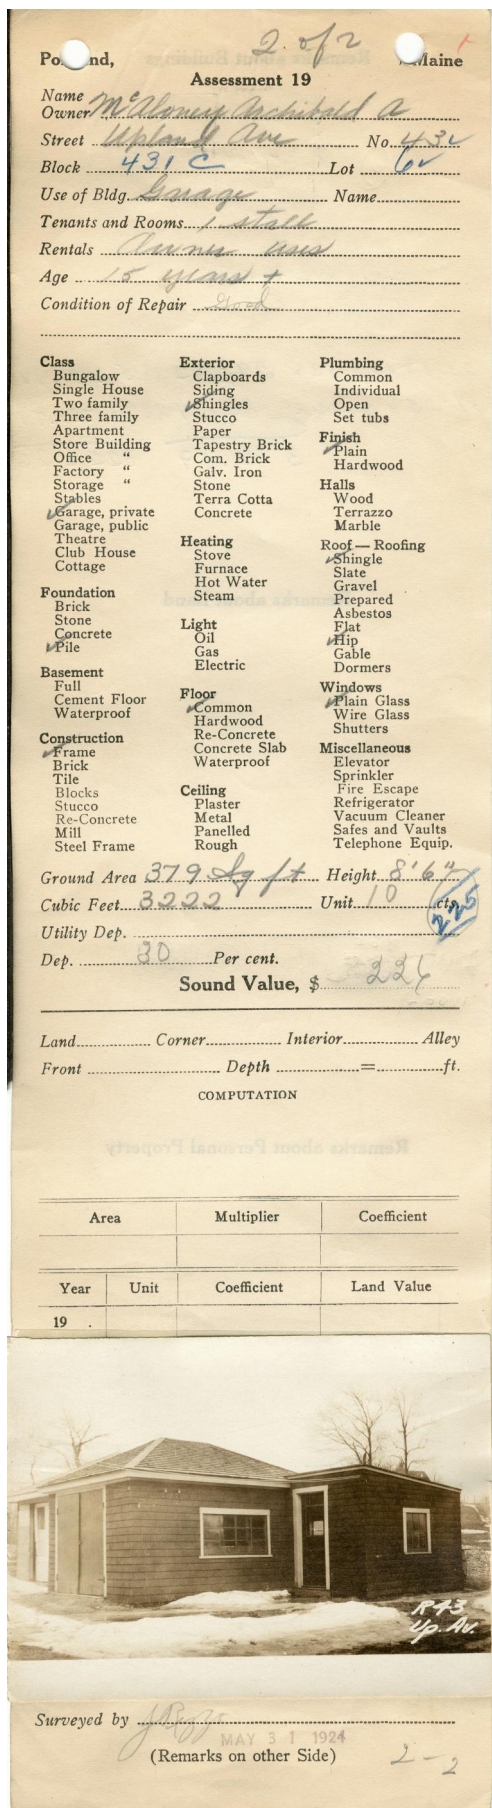 2 of 2
Portland, Maine
Assessment 19
Name
Owner McAloney Archibald A
Street Upland Ave No. 43
Block 431 C Lot 6
Use of Bldg. Garage Name
Tenants and Rooms 1 stall
Rentals Owner uses
Age 15 years +
Condition of Repair Good
Class
Bungalow
Single House
Two family
Three family
Apartment
Store Building
Office "
Factory "
Storage "
Stables
Garage, private
Garage, public
Theatre
Club House
Cottage
Foundation
Brick
Stone
Concrete
Pile
Basement
Full
Cement Floor
Waterproof
Construction
Frame
Brick
Tile
Blocks
Stucco
Re-Concrete
Mill
Steel Frame
Exterior
Clapboards
Siding
Shingles
Stucco
Paper
Tapestry Brick
Com. Brick
Galv. Iron
Stone
Terra Cotta
Concrete
Heating
Stove
Furnace
Hot Water
Steam
Light
Oil
Gas
Electric
Floor
Common
Hardwood
Re-Concrete
Concrete Slab
Waterproof
Ceiling
Plaster
Metal
Panelled
Rough
Plumbing
Common
Individual
Open
Set tubs
Finish
Plain
Hardwood
Halls
Wood
Terrazzo
Marble
Roof — Roofing
Shingle
Slate
Gravel
Prepared
Asbestos
Flat
Hip
Gable
Dormers
Windows
Plain Glass
Wire Glass
Shutters
Miscellaneous
Elevator
Sprinkler
Fire Escape
Refrigerator
Vacuum Cleaner
Safes and Vaults
Telephone Equip.
Ground Area 379 Sq ft Height 8' 6"
Cubic Feet 3222 Unit 10 cts. 225
Utility Dep.
Dep. 30 Per cent.
Sound Value, $ 226
Land Corner Interior Alley
Front Depth = ft.
COMPUTATION
Area Multiplier Coefficient
Year Unit Coefficient Land Value
19 .
R43
Up. Av.
Surveyed by
MAY 31 1924
(Remarks on other Side)
2 - 2